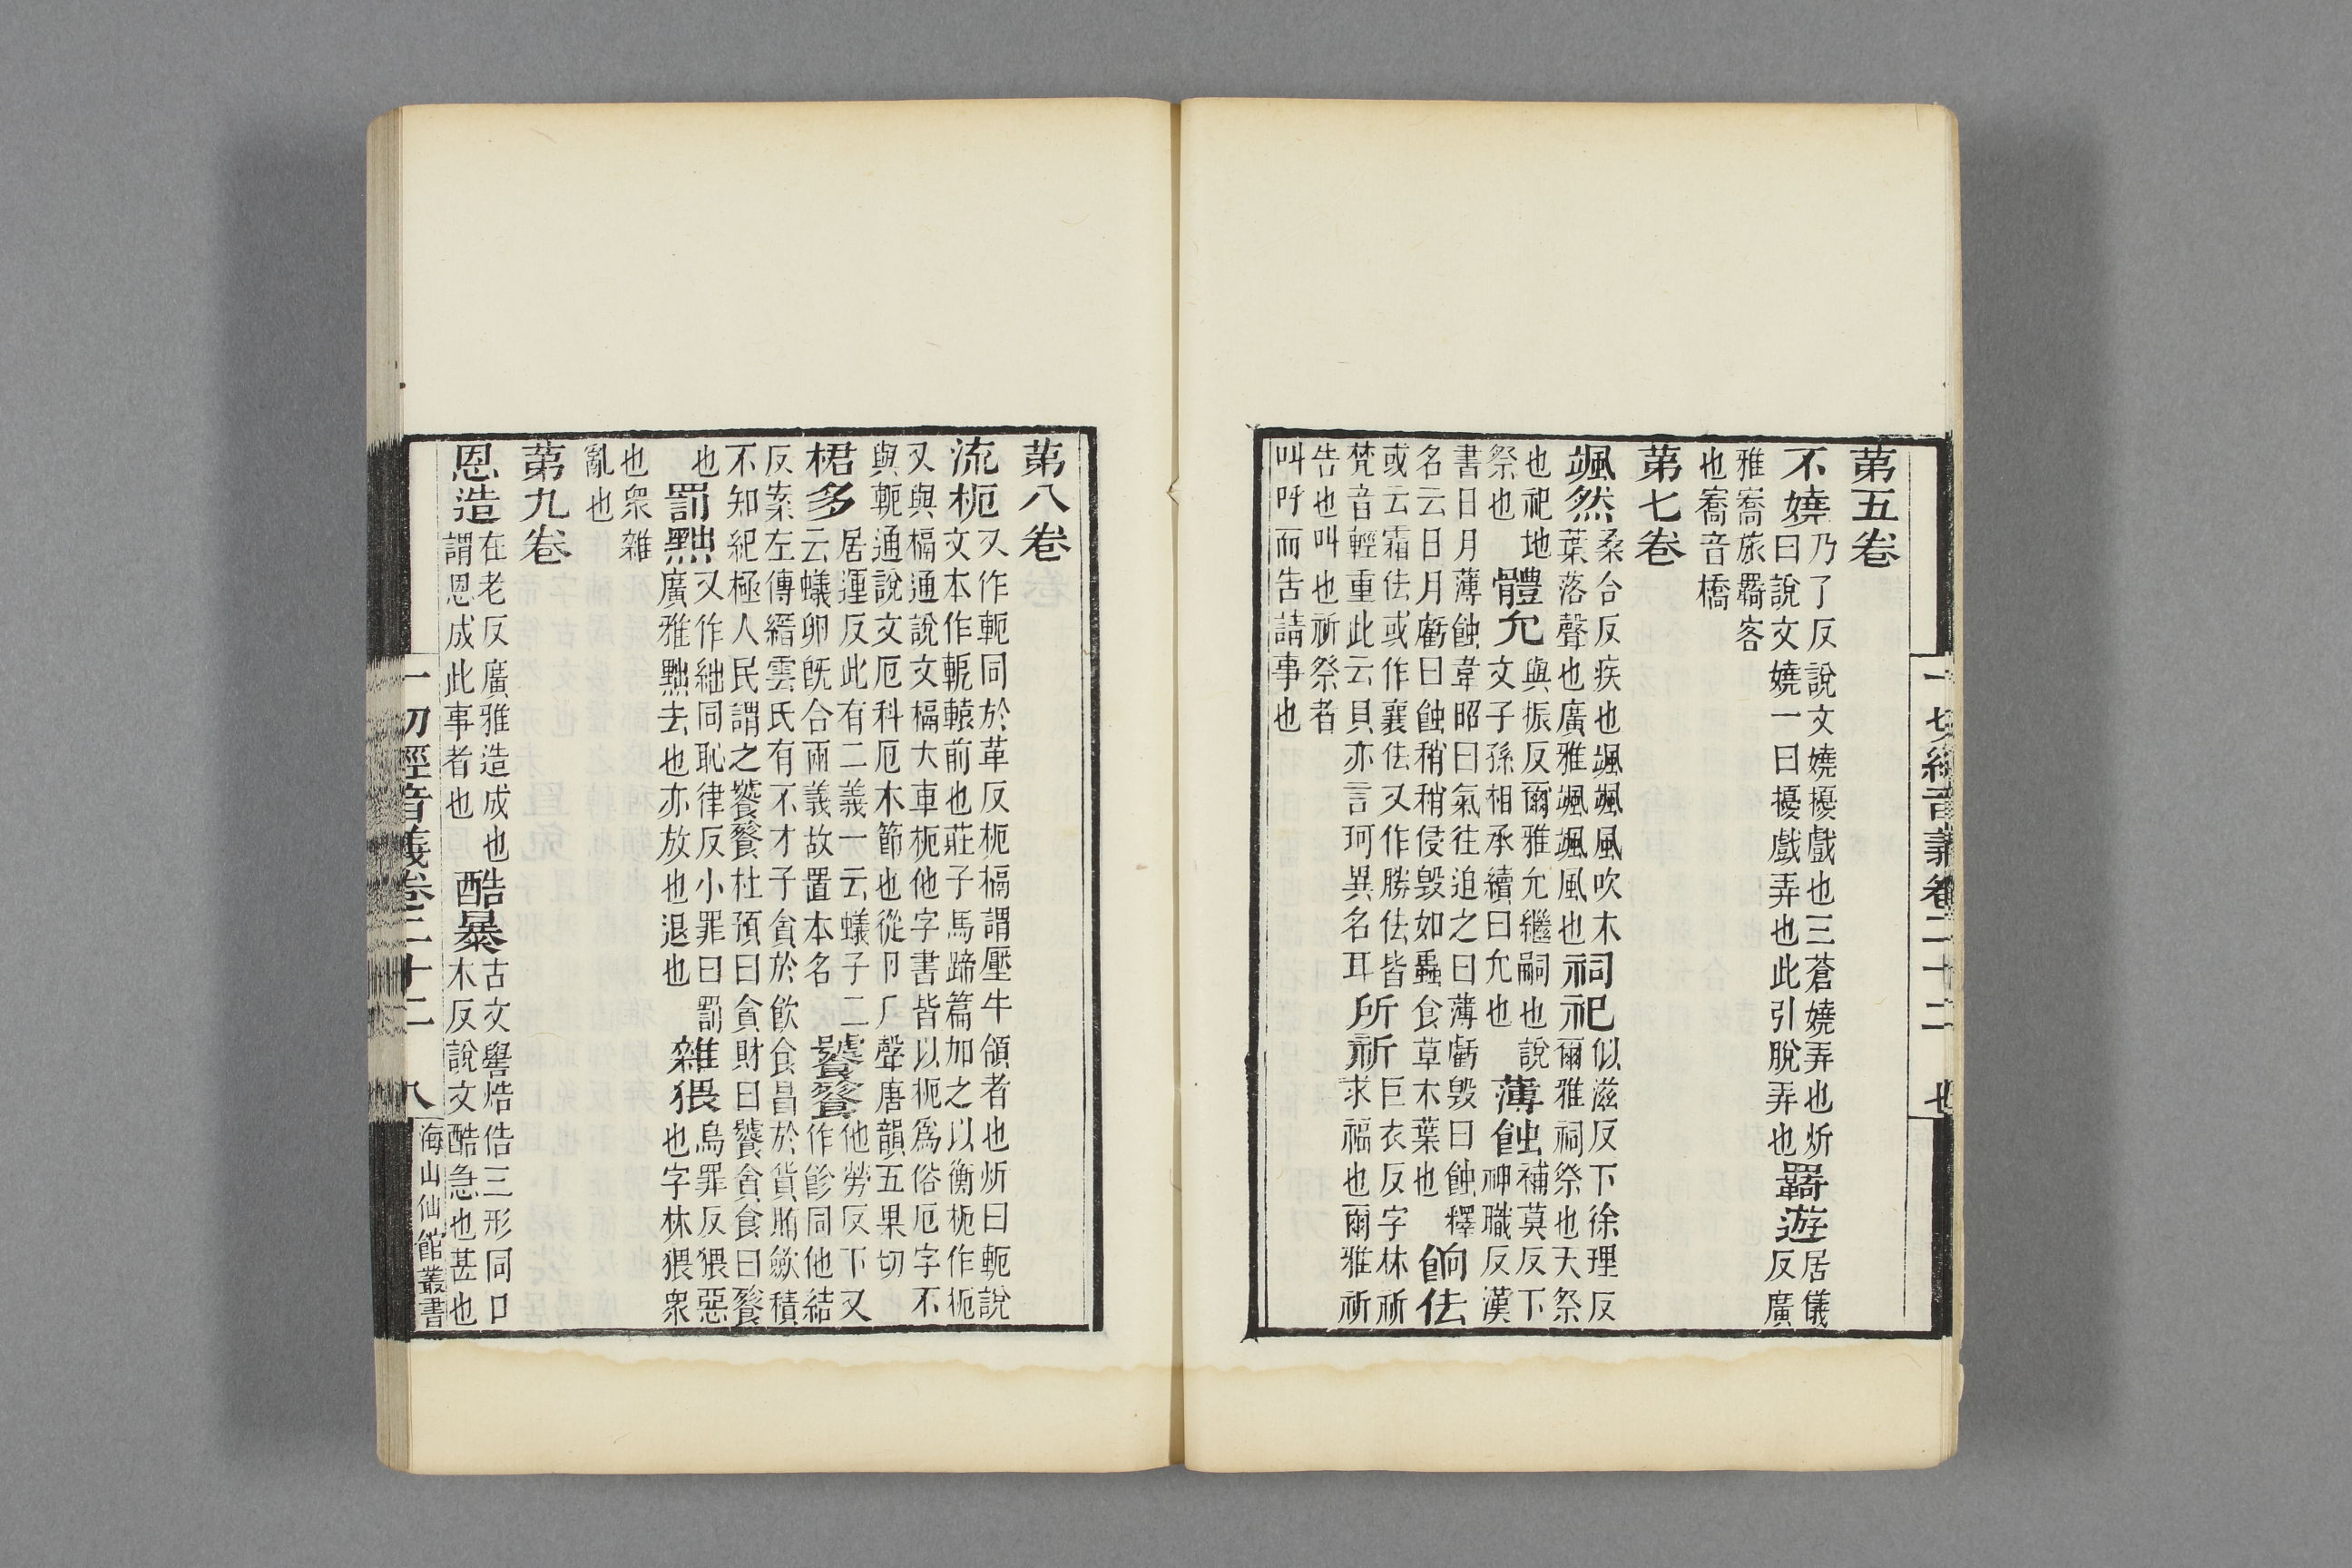 一切經音義卷二十二 七
第五卷
不嬈乃了反說文嬈擾戲也三蒼嬈弄也炘曰說文嬈一曰擾戲弄也此引脫弄也羇遊居儀反廣
雅㝯旅羇客也㝯音橋
第七卷
颯然桑合反疾也颯颯風吹木葉落聲也廣雅颯颯風也祠祀似滋反下徐理反爾雅祠祭也天祭
也祀地祭也體允與振反爾雅允繼嗣也說文子孫相承續曰允也薄蝕補莫反下神職反漢
書日月薄蝕韋昭曰氣往迫之曰薄虧毀曰蝕釋名云日月虧曰蝕稍稍侵毀如蟲食草木葉也餉佉
或云霜佉或作襄佉又作勝佉皆梵音輕重此云貝亦言珂異名耳所祈巨衣反字林祈求福也爾雅祈
告也叫也祈祭者叫呼而告請事也
第八卷
流枙又作軛同於革反枙槅謂壓牛領者也炘曰軛說文本作軶轅前也莊子馬蹄篇加之以衡枙作枙
又與槅通說文槅大車枙他字書皆以枙爲俗厄字不與軛通說文厄科厄木節也從卪厂聲唐韻五果切
桾多居運反此有二義一云蟻子二云蟻卵旣合兩義故置本名饕餮他勞反下又作飻同他結
反案左傳縉雲氏有不才子貪於飲食昌於貨賄斂積不知紀極人民謂之饕餮杜預曰貪財曰饕貪食曰餮
也罰黜又作絀同恥律反小罪曰罰廣雅黜去也亦放也退也雜猥烏罪反猥惡也字林猥衆
也衆雜亂也
第九卷
恩造在老反廣雅造成也謂恩成此事者也酷暴古文嚳焅俈三形同口木反說文酷急也甚也
一切經音義卷二十二 八 海山仙館叢書